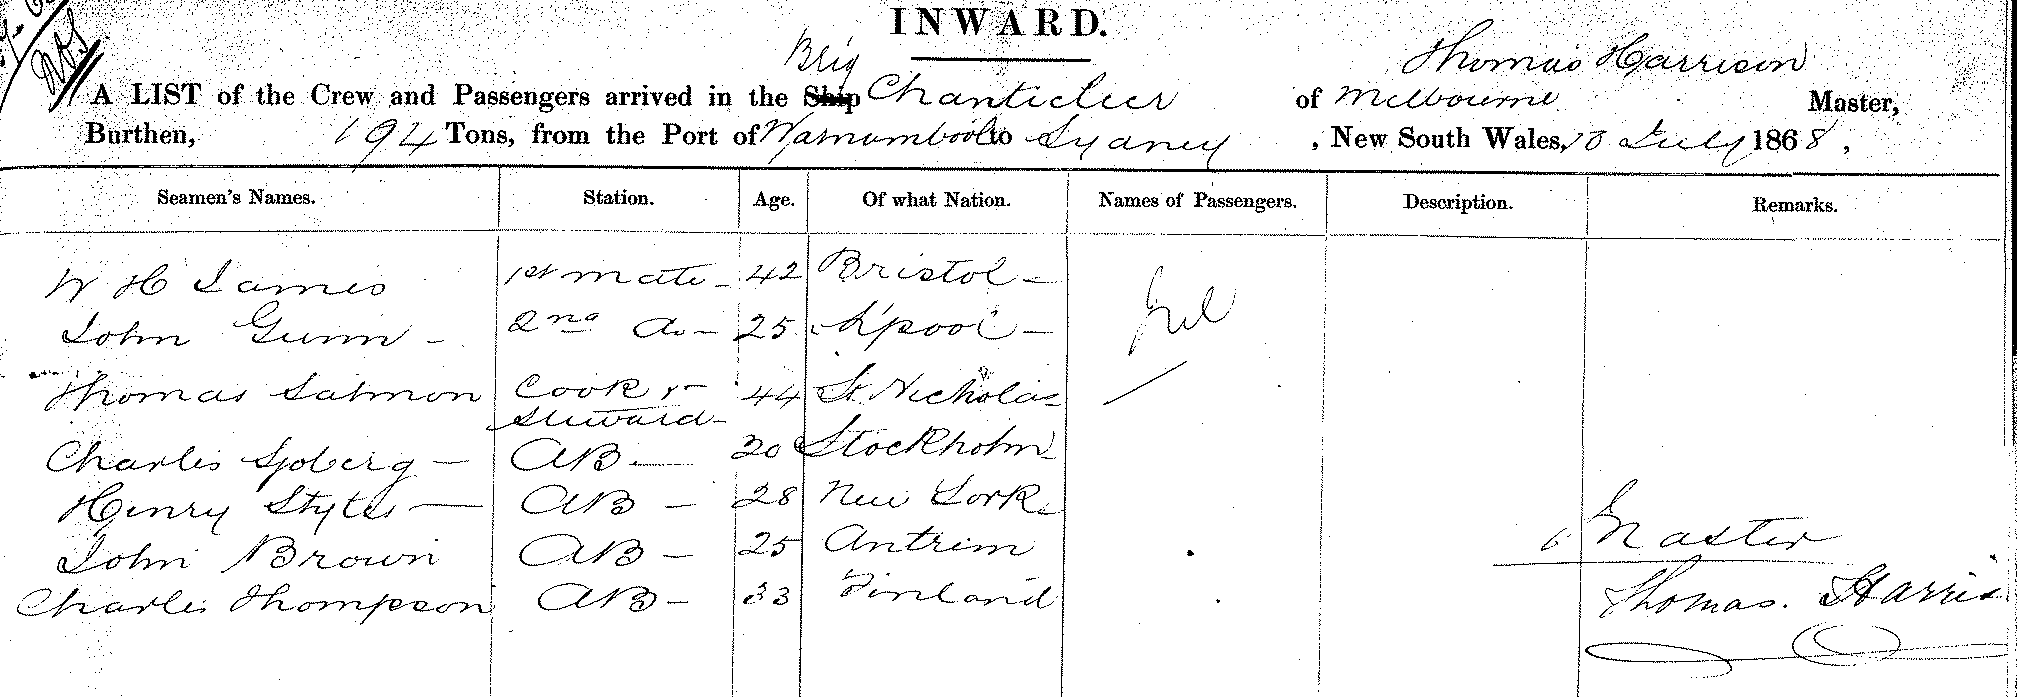 INWARD.
Brig
Thomas Harrison
A LIST of the Crew and Passengers arrived in the Ship Chanticleer of Melbourne Master,
Burthen, 194 Tons, from the Port of Warnambool to Sydney , New South Wales, 10 July 1868,
Seamen's Names. Station. Age. Of what Nation. Names of Passengers. Description. Remarks.
W H James 1st mate - 42 Bristol - Nil
John Gunn - 2nd Do - 25 L'pool -
Thomas Salmon Cook & Steward - 44 St Nicholas
Charles Sjoberg - AB - 30 Stockholm -
Henry Styles - AB - 28 New York
John Brown AB - 25 Antrim Master
Charles Thompson AB - 33 Finland Thomas. Harris